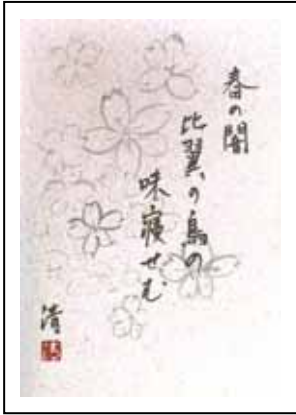 春の闇
比翼の鳥の
味寝せむ
清